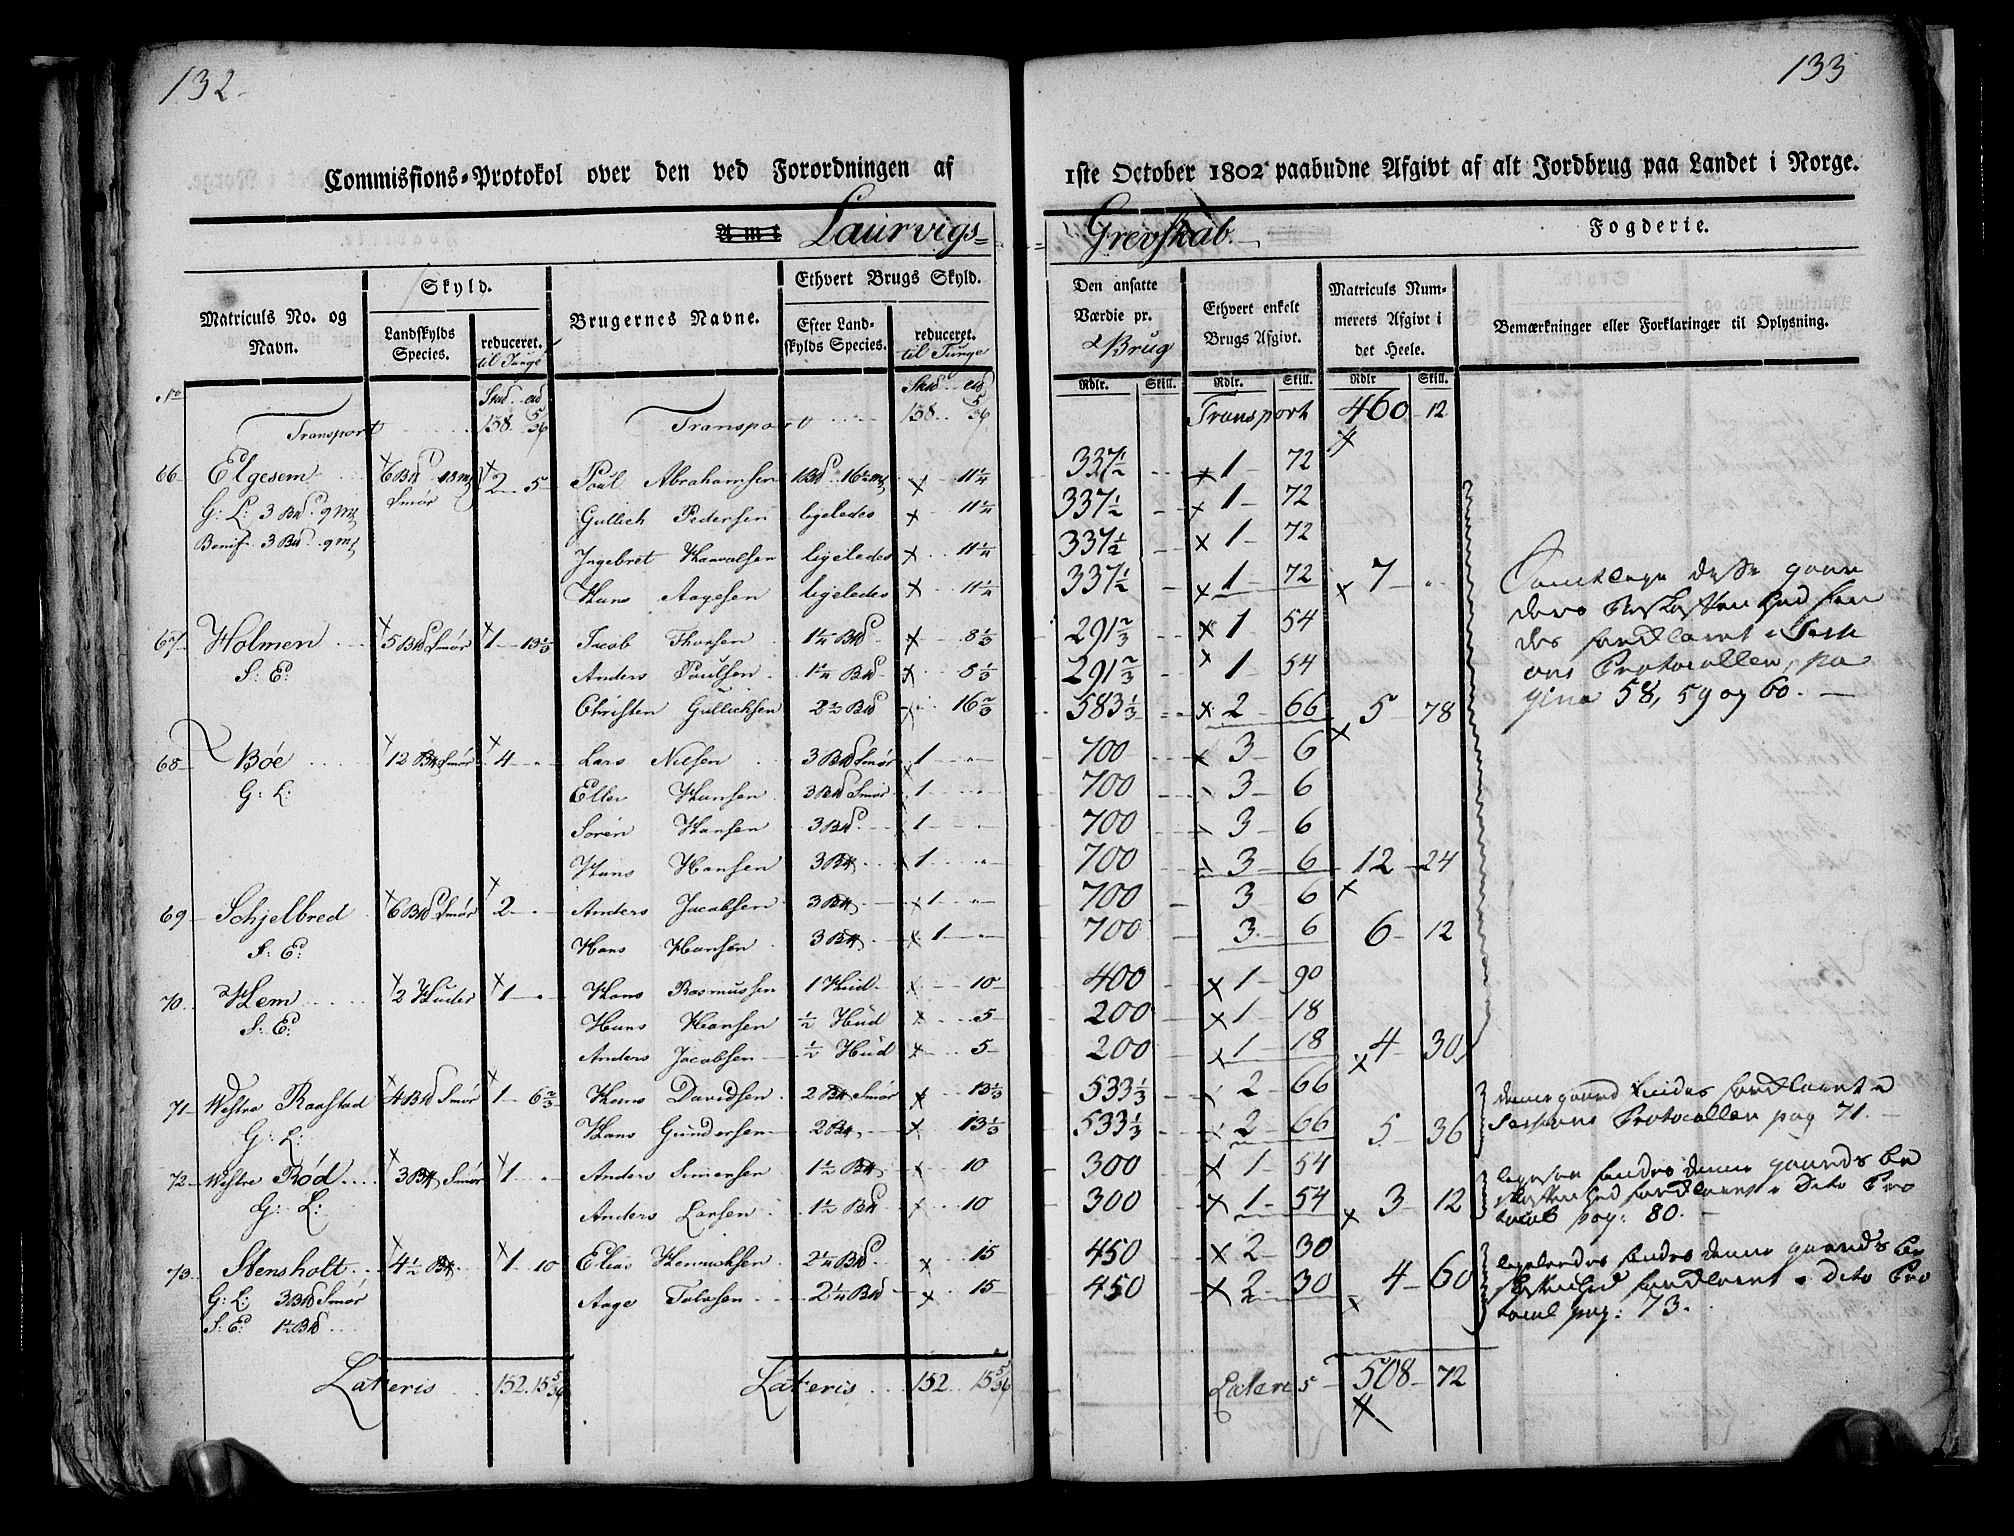 132
133
Commissions-Protokol over den ved Forordningen af
1ste October 1802 paabudne Afgivt af alt Jordbrug paa Landet i Norge.
Amt Laurvigs=
Grevskab. Fogderie.
Matriculs No. og Navn.
Skyld.
Landskylds Species.
reduceret. til Tunge
Brugernes Navne.
Ethvert Brugs Skyld.
Efter Landskylds Species.
reduceret. til Tunge
Den ansatte Værdie pr. Brug
Ethvert enkelt Brugs Afgivt.
Matriculs Nummerets Afgivt i det Heele.
Bemærkninger eller Forklaringer til Oplysning.
Rdlr. Skill. Rdlr. Skill. Rdlr Skill.
No
Transport 138. 5/36 Transport 138. 5/36 Transport 460 12
66 Elgesem 6 Bd 18 mk Smør 2 5 Poul Abrahamsen 1 Bd 16½ mk 11¼ 337½ 1 72
G: L: 3 Bd. 9 mk Gullich Pedersen ligeledes 11¼ 337½ 1 72
Benif. 3 Bd. 9 mk Ingebret ligeledes 11¼ 337½ 1 72
Hans Aagesen ligeledes 11¼ 337½ 1 72 7
67 Holmen 5 Bd Smør 1 13⅓ Jacob Thorsen 1¼ Bd 8⅓ 291⅔ 1 54
S: E: Anders Paulsen 1¼ Bd 8⅓ 291⅔ 1 54
Christen Gullichsen 2½ Bd 16⅔ 583⅓ 2 66 5 78
68 Bøe 12 Bd Smør 4 Lars Nielsen 3 Bd Smør 1 700 3 6
G: L: Eller Hansen 3 Bd Smør 1 700 3 6
Søren Hansen 3 Bd 1 700 3 6
Hans Hansen 3 Bd 1 700 3 6 12 24
69 Schjelbred 6 Bd Smør 2 Anders Jacobsen 3 Bd 1 700 3 6
S: E: Hans Hansen 3 Bd 1 700 3 6 6 12
70. Hem 2 Huder 1 Hans Rasmussen 1 Hud 10 400 1 90
S: E: Hans Hansen ½ Hud 5 200 1 18
Anders Jacobsen ½ Hud 5 200 1 18 4 30
71 Westre Raastad 4 Bd Smør 1 6⅔ Hans Davidsen 2 Bd Smør 13⅓ 533⅓ 2 66
G: L: Hans Gundersen 2 Bd 13⅓ 533⅓ 2 66 5 36
72 Westre Rød 3 Bd Smør 1 Anders Simensen 1½ Bd 10 300 1 54
G: L: Anders Larsen 1½ Bd 10 300 1 54 3 12
73 Stensholt 4½ Bd 1 10 Elias Henrichsen 2¼ Bd 15 450 2 30
G: L: 3 Bd Smør Aage 2¼ Bd 15 450 2 30 4 60
S: E: 1½ Bd
Samtlige disse gaarders Beskaffenhed findes forklaret i Sessions Protocollen, pagina 58, 59 og 60.
denne gaard findes forklaret i Sessions Protocollen pag 71.
ligesaa findes denne gaards beskaffenhed forklaret i Dito Protocol pag: 80.
ligeledes findes denne gaards Beskaffenhed forklaret i Dito Protocol pag: 73.
Lateris 152. 15 5/36 Lateris 152 15 5/36 Lateris 508 72